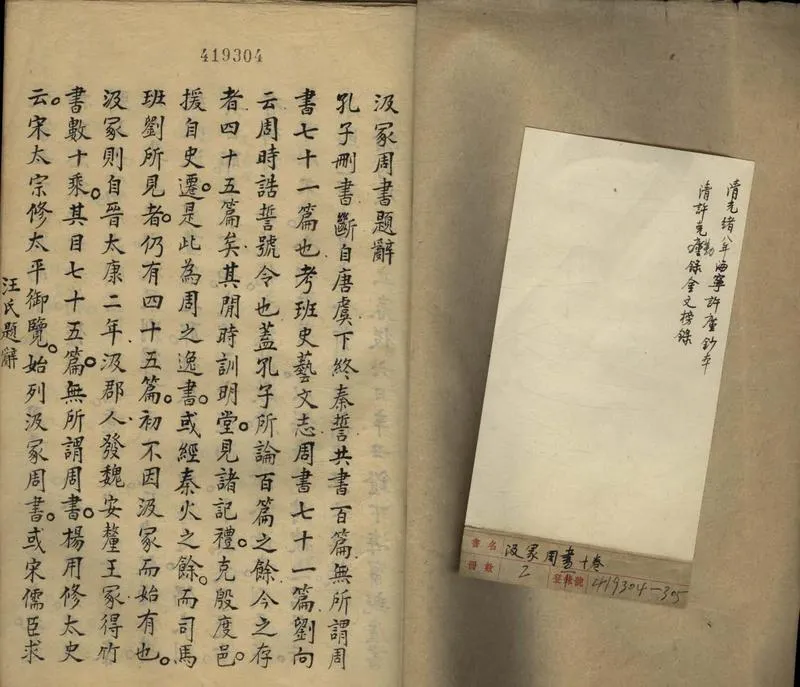 419304
汲冢周書題辭
孔子刪書斷自唐虞下終秦誓共書百篇無所謂周
書七十一篇也考班史藝文志周書七十一篇劉向
云周時誥誓號令也蓋孔子所論百篇之餘今之存
者四十五篇矣。其閒時訓明堂。見諸記禮。克殷度邑。
援自史遷。是此為周之逸書。或經秦火之餘。而司馬
班劉所見者。仍有四十五篇。初不因汲冢而始有也。
汲冢則自晉太康二年汲郡人發魏安釐王冢得竹
書數十乘。其目七十五篇。無所謂周書。楊用修太史
云。宋太宗修太平御覽。始列汲冢周書。或宋儒臣求
汪氏題辭
清光緒八年海寧許廑鈔本
清許克勤廑錄金文榜錄
書名 汲冢周書十卷
冊數 2 登錄號 419304-305